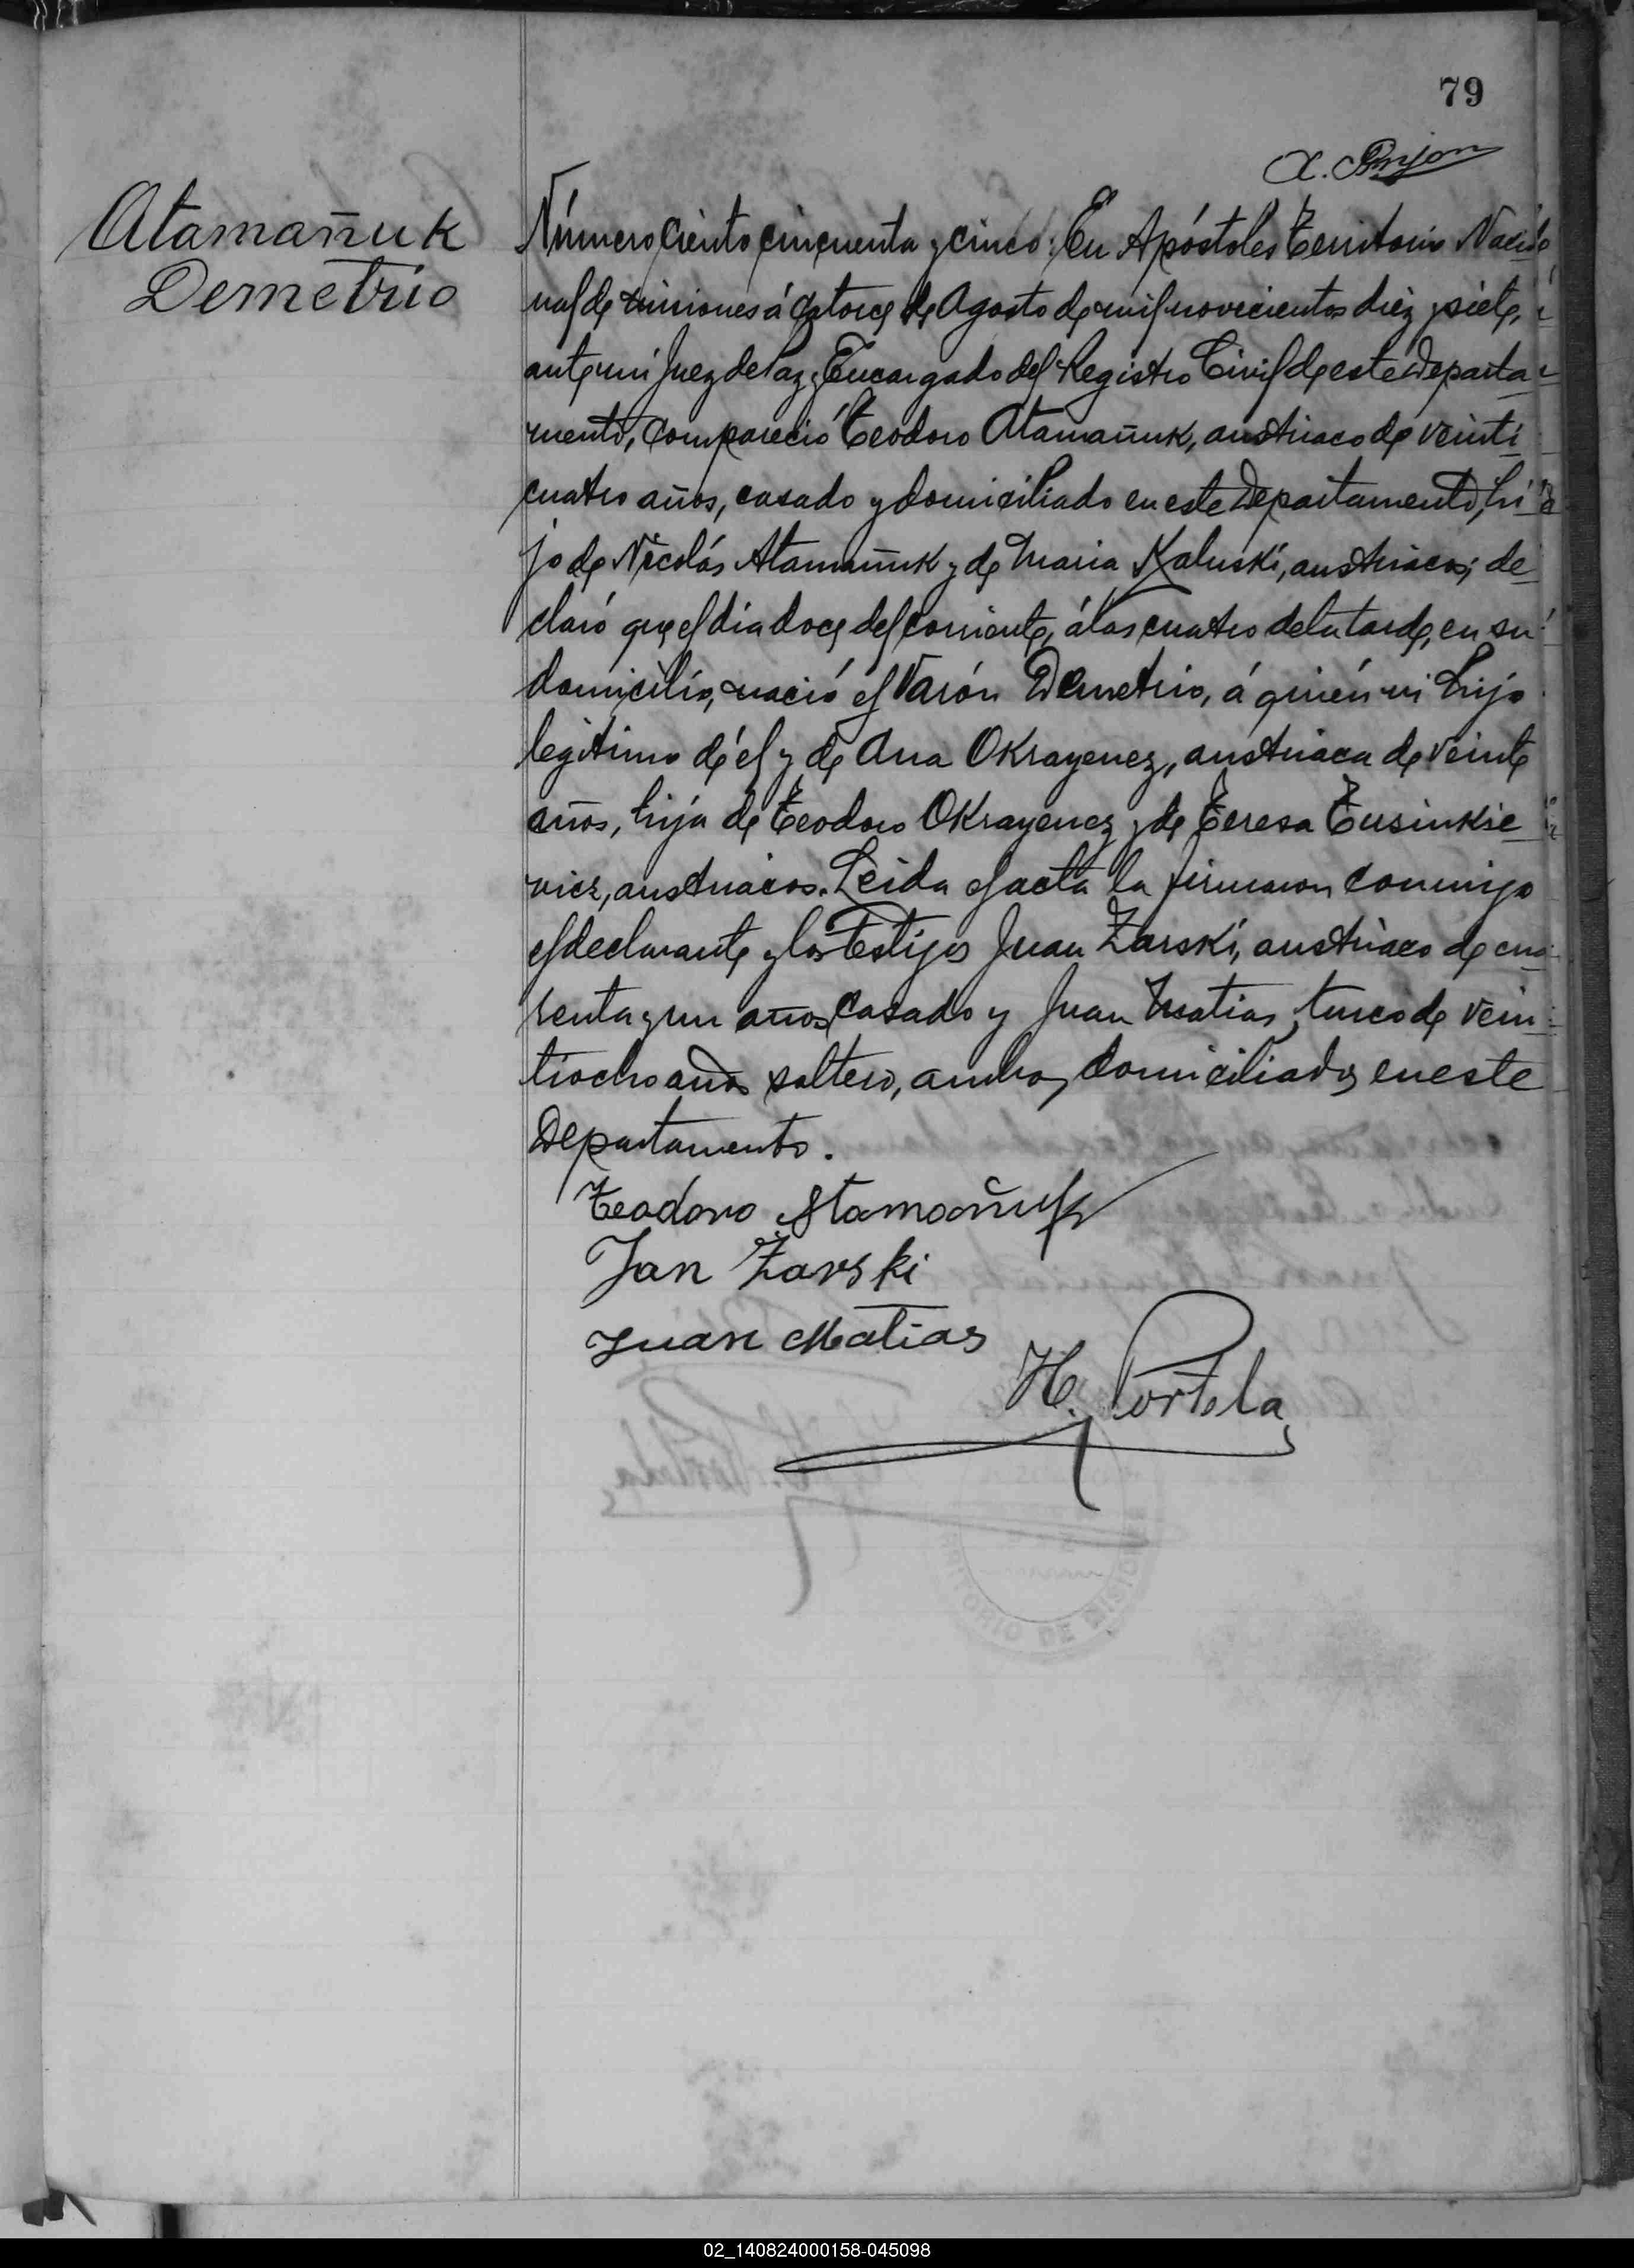 79
Atamañuk
Demetrio
Número ciento cincuenta y cinco: En Apóstoles Territorio Nacio
nal de Misiones á catorce de Agosto de mil novecientos diez y siete,
ante mi Juez de Paz y Encargado del Registro Civil de este Departa-
mento, compareció Teodoro Atamañuk, austriaco de veinti
cuatro años, casado y domiciliado en este Departamento, hi-
jo de Nicolás Atamañuk y de Maria Kaluski, austriacos; de
claró que el dia doce del corriente, á las cuatro de la tarde, en su
domicilio, nació el Varón Demetrio, á quién vi hijo
legitimo de él y de Ana Okrayenez, austriaca de veinte
años, hija de Teodoro Okrayenez y de Teresa Tusinkie
vicz, austriacos. Leida el acta la firmaron conmigo
el declarante y los Testigos Juan Zarski, austriaco de cua
renta y un años, casado y Juan Matias, turco de vein-
tiocho años soltero, ambos domiciliados en este
Departamento.
Teodoro Atamañuk
Jan Żarski
Juan Matias
H. Portela
TORIO DE MISIONE
02_140824000158-045098